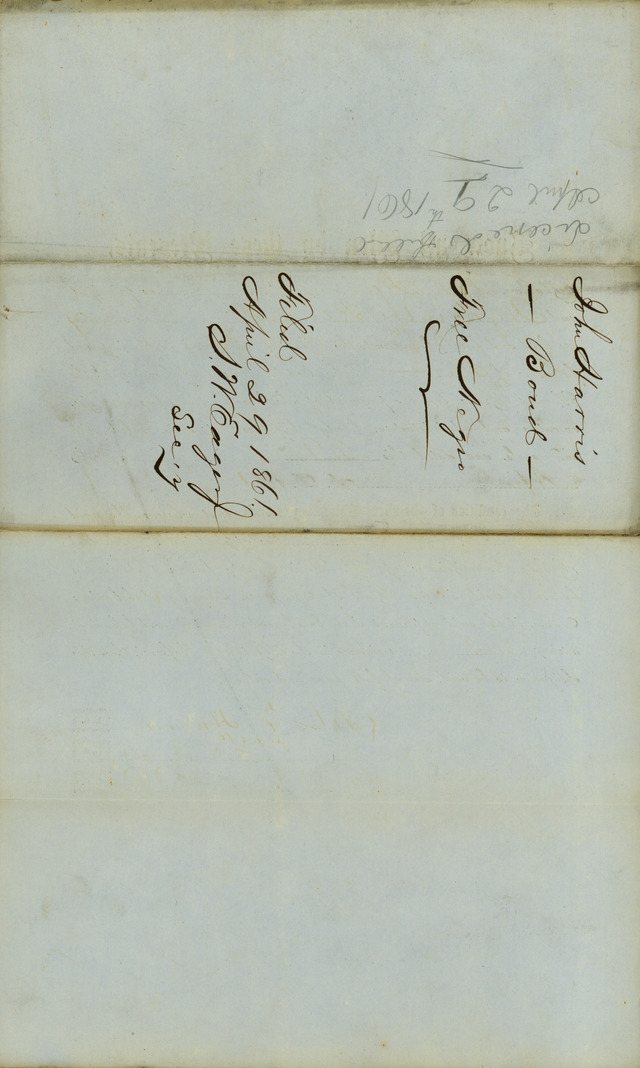 John Harris
— Bond —
Free Negro
Filed
April 29 1861
S. W. Eager Jr
Sec'y
Licensed filed
April 29th 1861